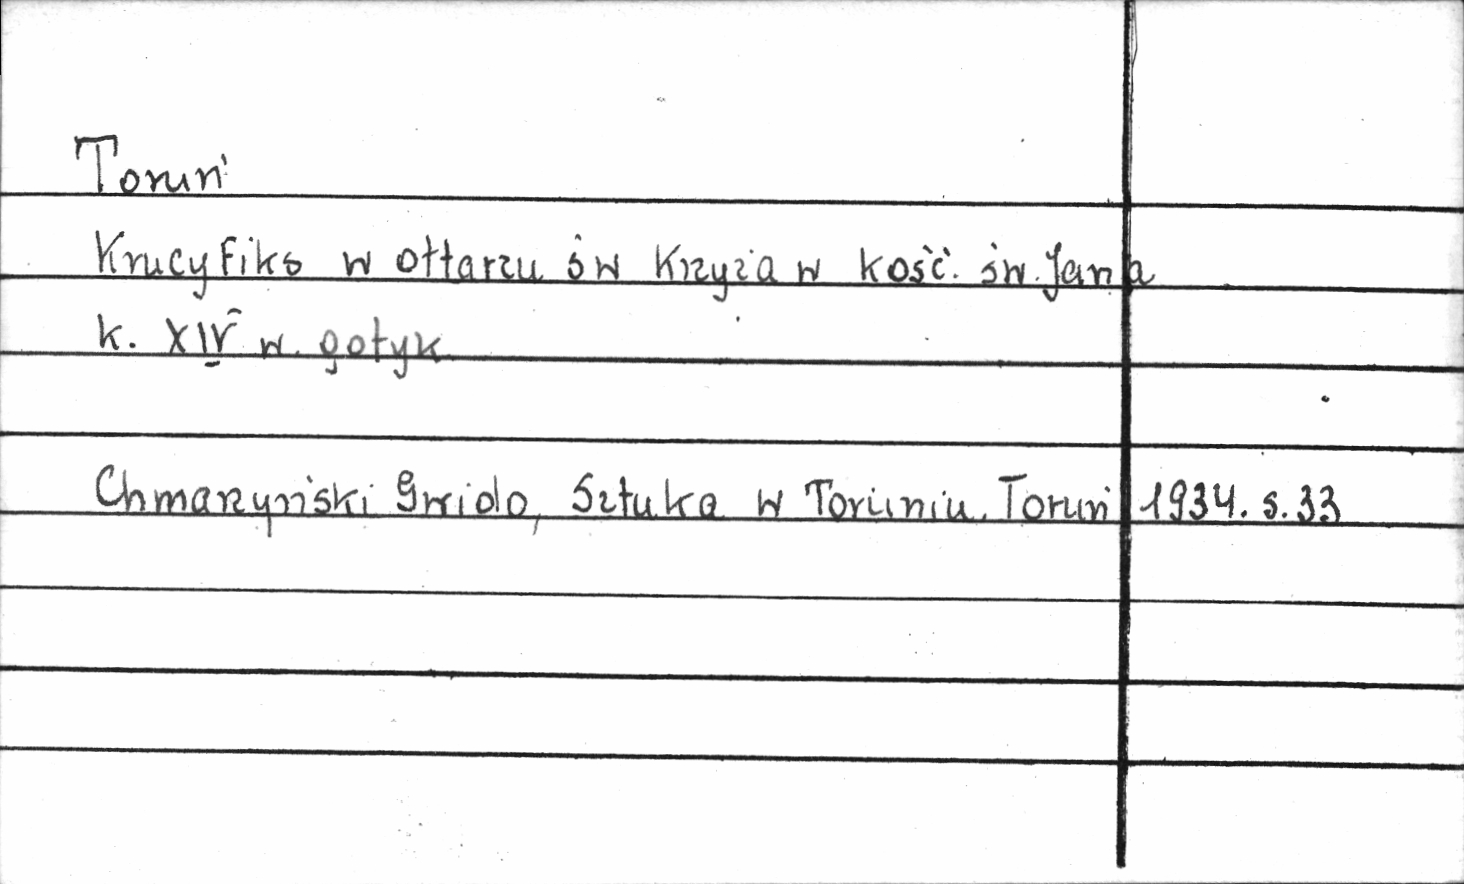 Toruń
Krucyfiks w ołtarzu św Krzyża w kość. św. Jana
k. XIV w. gotyk
Chmarzyński Gwido, Sztuka w Toruniu. Toruń 1934. s. 33